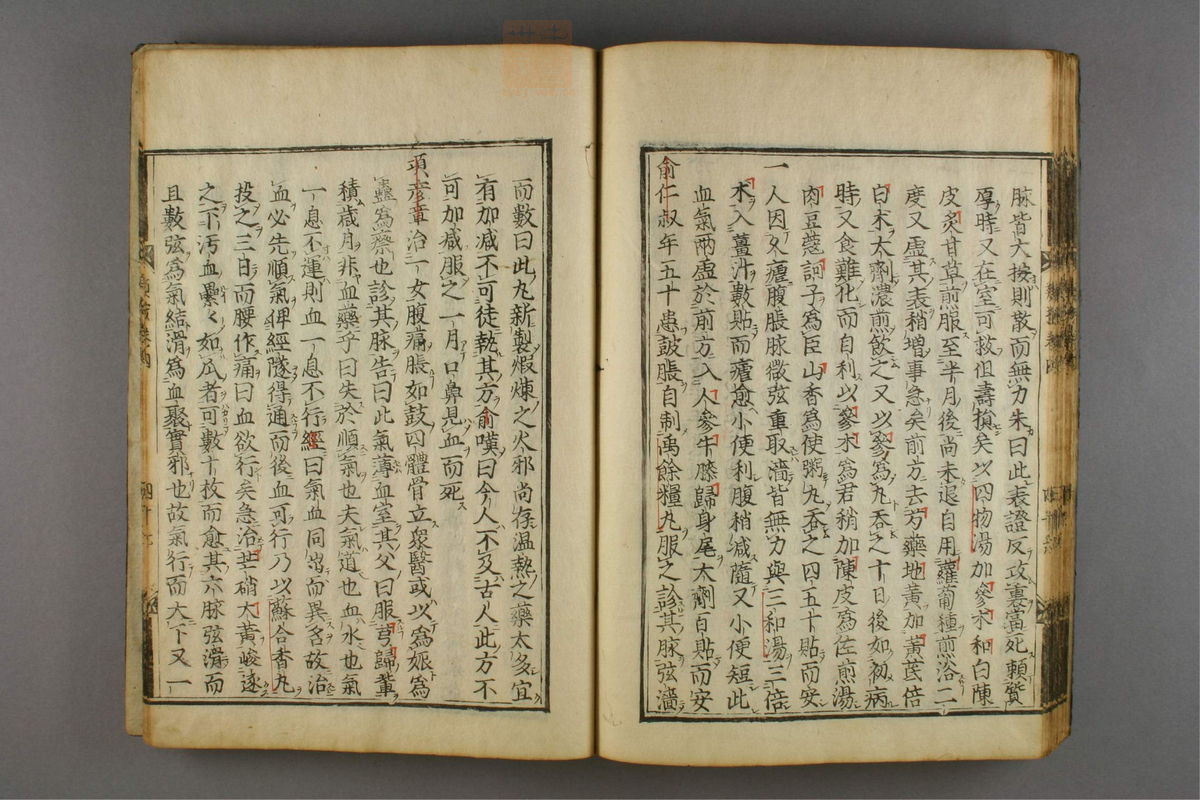 脉皆大按則散而無力朱曰此表證反攻裏當死賴質
厚時又在室可救但壽損矣以四物湯加參朮和白陳
皮炙甘草煎服至半月後尚未退自用蘿蔔種煎浴二
度又虛其表稍增事急矣前方去芍藥地黃加黃芪倍
白朮大劑濃煎飲之又以參爲丸吞之十日後如初病
時又食難化而自利以參朮爲君稍加陳皮爲佐煎湯
肉豆蔻訶子爲臣山香爲使粥丸吞之四五十貼而安
一人因久瘧腹脹脉微弦重取濇皆無力與三和湯三倍
朮入薑汁數貼而瘧愈小便利腹稍减隨又小便短此
血氣兩虛於前方入人參牛膝歸身尾大劑百貼而安
俞仁叔年五十患鼓脹自制禹餘糧丸服之診其脉弦濇
而數曰此丸新製煆煉之火邪尚存温熱之藥太多宜
有加减不可徒執其方俞嘆曰今人不及古人此方不
可加减服之一月口鼻見血而死
項彦章治一女腹痛脹如鼓四體骨立衆醫或以爲娠爲
蠱爲瘵也診其脉告曰此氣薄血室其父曰服芎歸輩
積歲月非血藥乎曰失於順氣也夫氣道也血水也氣
一息不運則血一息不行經曰氣血同出而異名故治
血必先順氣俾經隧得通而後血可行乃以蘇合香丸
投之三日而腰作痛曰血欲行矣急治芒硝大黃峻逐
之下汚血纍々如瓜者可數十枚而愈其六脉弦滑而
且數弦爲氣結滑爲血聚實邪也故氣行而大下又一